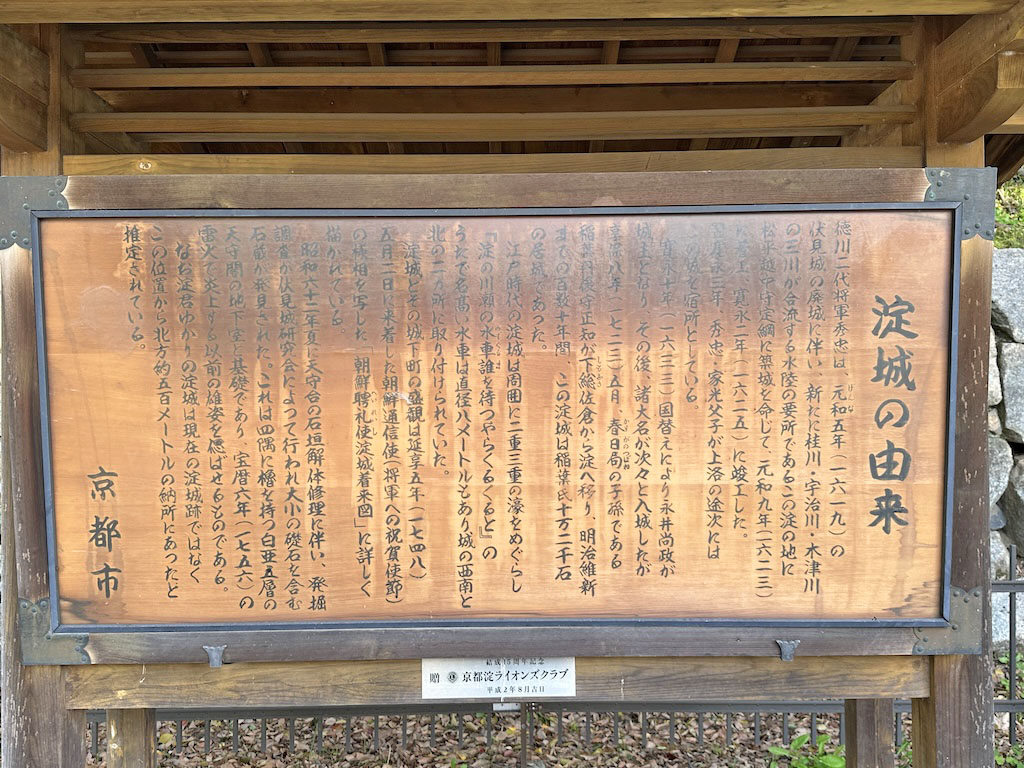 淀城の由来
徳川二代将軍秀忠は、元和五年（一六一九）の
伏見城の廃城に伴い、新たに桂川・宇治川・木津川
の三川が合流する水陸の要所であるこの淀の地に
松平越中守定綱に築城を命じて、元和九年（一六二三）
寛永二年（一六二五）に竣工した。
寛永三年、秀忠・家光父子が上洛の途次には
この城を宿所としている。
寛永十年（一六三三）国替えにより永井尚政が
城主となり、その後、諸大名が次々と入城したが
享保八年（一七二三）五月、春日局の子孫である
稲葉丹後守正知が下総佐倉から淀へ移り、明治維新
までの百数十年間、この淀城は稲葉氏十万二千石
の居城であった。
江戸時代の淀城は周囲に二重三重の濠をめぐらし
『淀の川瀬の水車誰を待つやらくるくると』の
うたで名高い水車は直径八メートルもあり城の西南と
北の二ヵ所に取り付けられていた。
淀城とその城下町の盛観は延享五年（一七四八）
五月二日に来着した朝鮮通信使（将軍への祝賀使節）
の様相を写した「朝鮮聘礼使淀城着来図」に詳しく
描かれている。
昭和六十二年夏に天守台の石垣解体修理に伴い、発掘
調査が伏見城研究会によって行われ大小の礎石を含む
石蔵が発見された。これは四隅に櫓を持つ白亜五層の
天守閣の地下室と基礎であり、宝暦六年（一七五六）の
雷火で炎上する以前の雄姿を偲ばせるものである。
なお淀君ゆかりの淀城は現在の淀城跡ではなく
この位置から北方約五百メートルの納所にあったと
推定されている。
京都市
結成15周年記念
贈 京都淀ライオンズクラブ
平成2年8月吉日